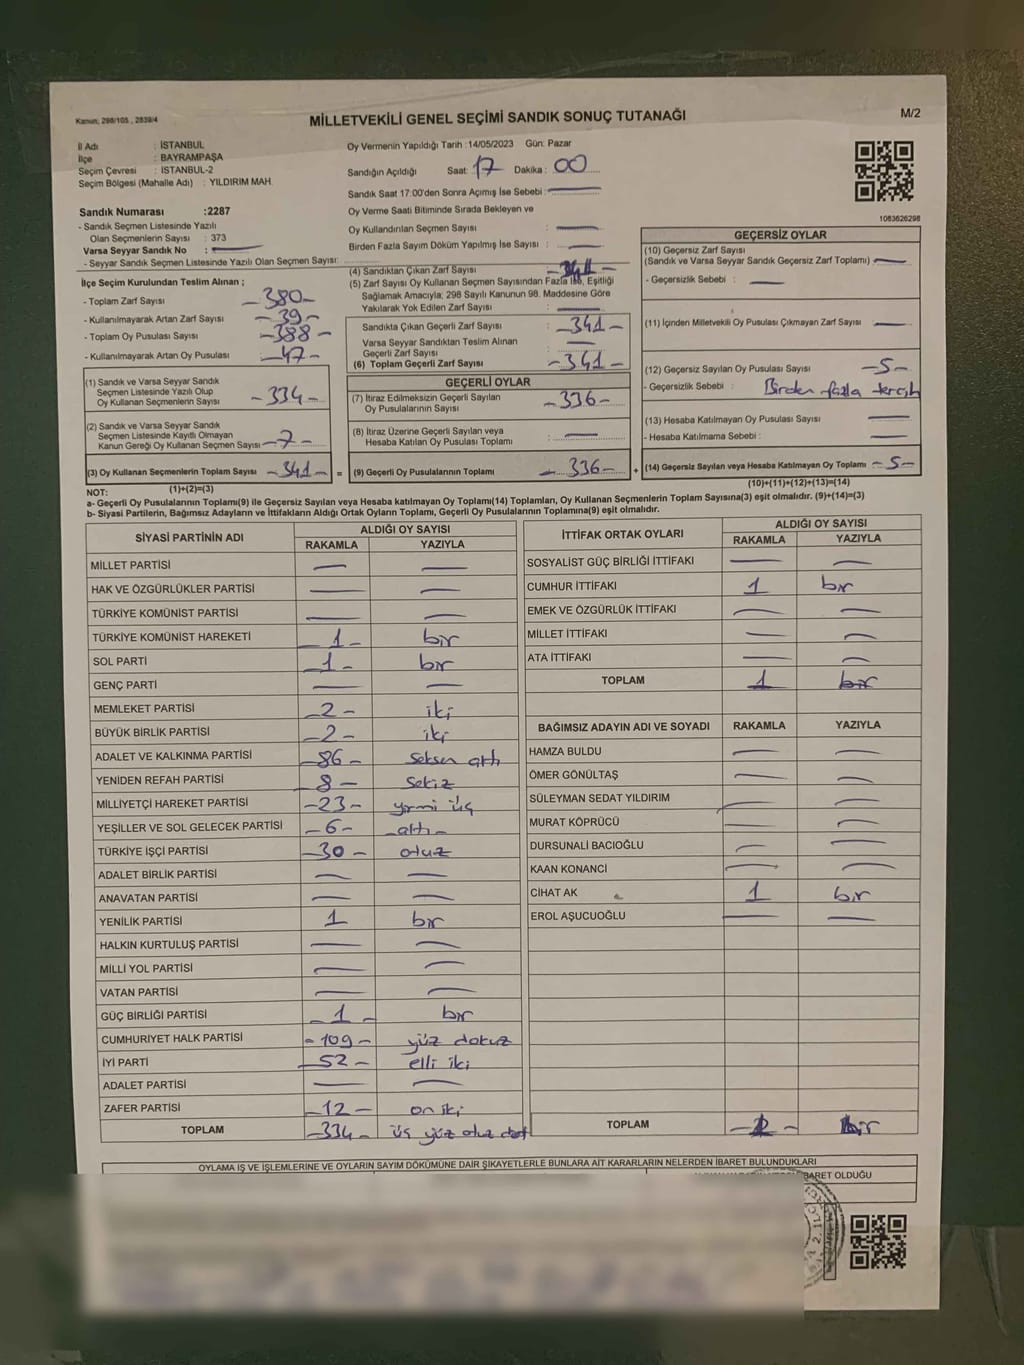 Kanun; 298/105 , 2839/4
MİLLETVEKİLİ GENEL SEÇİMİ SANDIK SONUÇ TUTANAĞI
M/2
İl Adı : İSTANBUL
İlçe : BAYRAMPAŞA
Seçim Çevresi : İSTANBUL-2
Seçim Bölgesi (Mahalle Adı) : YILDIRIM MAH.
Sandık Numarası :2287
- Sandık Seçmen Listesinde Yazılı
Olan Seçmenlerin Sayısı : 373
Varsa Seyyar Sandık No :
- Seyyar Sandık Seçmen Listesinde Yazılı Olan Seçmen Sayısı:
Oy Vermenin Yapıldığı Tarih :14/05/2023 Gün: Pazar
Sandığın Açıldığı Saat: 17 Dakika: 00
Sandık Saat 17:00'den Sonra Açımış İse Sebebi :
Oy Verme Saati Bitiminde Sırada Bekleyen ve
Oy Kullandırılan Seçmen Sayısı :
Birden Fazla Sayım Döküm Yapılmış İse Sayısı :
1063626298
İlçe Seçim Kurulundan Teslim Alınan ;
- Toplam Zarf Sayısı -380-
- Kullanılmayarak Artan Zarf Sayısı -39-
- Toplam Oy Pusulası Sayısı -388-
- Kullanılmayarak Artan Oy Pusulası -47-
(1) Sandık ve Varsa Seyyar Sandık
Seçmen Listesinde Yazılı Olup
Oy Kullanan Seçmenlerin Sayısı -334-
(2) Sandık ve Varsa Seyyar Sandık
Seçmen Listesinde Kayıtlı Olmayan
Kanun Gereği Oy Kullanan Seçmen Sayısı -7-
(3) Oy Kullanan Seçmenlerin Toplam Sayısı -341- =
(1)+(2)=(3)
(4) Sandıktan Çıkan Zarf Sayısı -341-
(5) Zarf Sayısı Oy Kullanan Seçmen Sayısından Fazla İse, Eşitliği
Sağlamak Amacıyla; 298 Sayılı Kanunun 98. Maddesine Göre
Yakılarak Yok Edilen Zarf Sayısı :
Sandıkta Çıkan Geçerli Zarf Sayısı : -341-
Varsa Seyyar Sandıktan Teslim Alınan
Geçerli Zarf Sayısı :
(6) Toplam Geçerli Zarf Sayısı : -341-
GEÇERLİ OYLAR
(7) İtiraz Edilmeksizin Geçerli Sayılan
Oy Pusulalarının Sayısı : -336-
(8) İtiraz Üzerine Geçerli Sayılan veya
Hesaba Katılan Oy Pusulası Toplamı :
(9) Geçerli Oy Pusulalarının Toplamı : -336- +
GEÇERSİZ OYLAR
(10) Geçersiz Zarf Sayısı
(Sandık ve Varsa Seyyar Sandık Geçersiz Zarf Toplamı)
- Geçersizlik Sebebi :
(11) İçinden Milletvekili Oy Pusulası Çıkmayan Zarf Sayısı
(12) Geçersiz Sayılan Oy Pusulası Sayısı -5-
- Geçersizlik Sebebi : Birden fazla tercih
(13) Hesaba Katılmayan Oy Pusulası Sayısı
- Hesaba Katılmama Sebebi :
(14) Geçersiz Sayılan veya Hesaba Katılmayan Oy Toplamı -5-
(10)+(11)+(12)+(13)=(14)
NOT:
a- Geçerli Oy Pusulalarının Toplamı(9) ile Geçersiz Sayılan veya Hesaba katılmayan Oy Toplamı(14) Toplamları, Oy Kullanan Seçmenlerin Toplam Sayısına(3) eşit olmalıdır. (9)+(14)=(3)
b- Siyasi Partilerin, Bağımsız Adayların ve İttifakların Aldığı Ortak Oyların Toplamı, Geçerli Oy Pusulalarının Toplamına(9) eşit olmalıdır.
SİYASİ PARTİNİN ADI
ALDIĞI OY SAYISI
RAKAMLA YAZIYLA
MİLLET PARTİSİ
HAK VE ÖZGÜRLÜKLER PARTİSİ
TÜRKİYE KOMÜNİST PARTİSİ
TÜRKİYE KOMÜNİST HAREKETİ -1- bir
SOL PARTİ -1- bir
GENÇ PARTİ
MEMLEKET PARTİSİ -2- iki
BÜYÜK BİRLİK PARTİSİ -2- iki
ADALET VE KALKINMA PARTİSİ -86- seksen altı
YENİDEN REFAH PARTİSİ -8- sekiz
MİLLİYETÇİ HAREKET PARTİSİ -23- yirmi üç
YEŞİLLER VE SOL GELECEK PARTİSİ -6- altı-
TÜRKİYE İŞÇİ PARTİSİ -30- otuz
ADALET BİRLİK PARTİSİ
ANAVATAN PARTİSİ
YENİLİK PARTİSİ 1 bir
HALKIN KURTULUŞ PARTİSİ
MİLLİ YOL PARTİSİ
VATAN PARTİSİ
GÜÇ BİRLİĞİ PARTİSİ -1- bir
CUMHURİYET HALK PARTİSİ -109- yüz dokuz
İYİ PARTİ -52- elli iki
ADALET PARTİSİ
ZAFER PARTİSİ -12- on iki
TOPLAM -334- üç yüz otuz dört
İTTİFAK ORTAK OYLARI
ALDIĞI OY SAYISI
RAKAMLA YAZIYLA
SOSYALİST GÜÇ BİRLİĞİ İTTİFAKI
CUMHUR İTTİFAKI 1 bir
EMEK VE ÖZGÜRLÜK İTTİFAKI
MİLLET İTTİFAKI
ATA İTTİFAKI
TOPLAM 1 bir
BAĞIMSIZ ADAYIN ADI VE SOYADI RAKAMLA YAZIYLA
HAMZA BULDU
ÖMER GÖNÜLTAŞ
SÜLEYMAN SEDAT YILDIRIM
MURAT KÖPRÜCÜ
DURSUNALİ BACIOĞLU
KAAN KONANCİ
CİHAT AK 1 bir
EROL AŞUCUOĞLU
TOPLAM -1- bir
OYLAMA İŞ VE İŞLEMLERİNE VE OYLARIN SAYIM DÖKÜMÜNE DAİR ŞİKAYETLERLE BUNLARA AİT KARARLARIN NELERDEN İBARET BULUNDUKLARI
BARET OLDUĞU